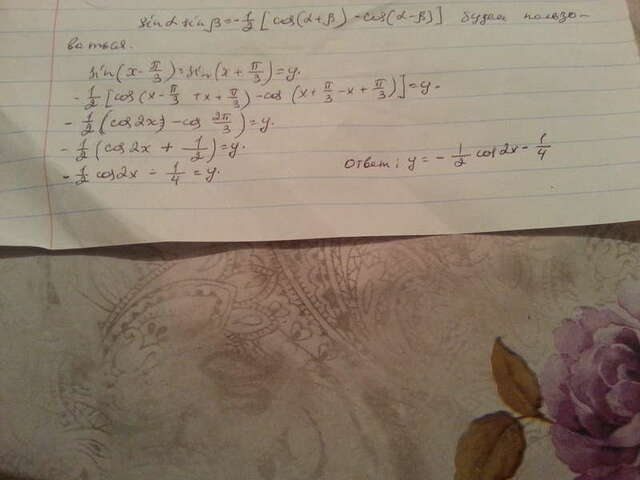 sin α sin β = -1/2 [cos(α+β) - cos(α-β)] будем пользо-
ваться.
sin(x - π/3) = sin(x + π/3) = y.
-1/2 [cos(x - π/3 + x + π/3) - cos(x + π/3 - x + π/3)] = y.
-1/2 (cos 2x) - cos 2π/3) = y.
-1/2 (cos 2x + 1/2) = y.
-1/2 cos 2x - 1/4 = y.
Ответ: y = -1/2 cos 2x - 1/4